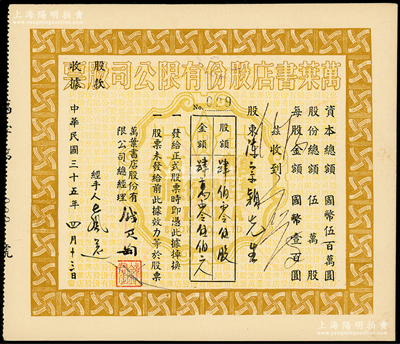 上海陽明拍賣
萬葉書店股份有限公司股票
No. 009
資本總額 國幣伍百萬圓
股份總額 伍萬股
每股金額 國幣壹百圓
茲收到
股東 先生
股額 肆伯零伍股
金額 肆萬零伍伯元
一發給正式股票時即憑此據掉換
一股票未發給前此據效力等於股票
萬葉書店股份有限公司總經理
經手人
中華民國三十五年四月十三日
股款收據